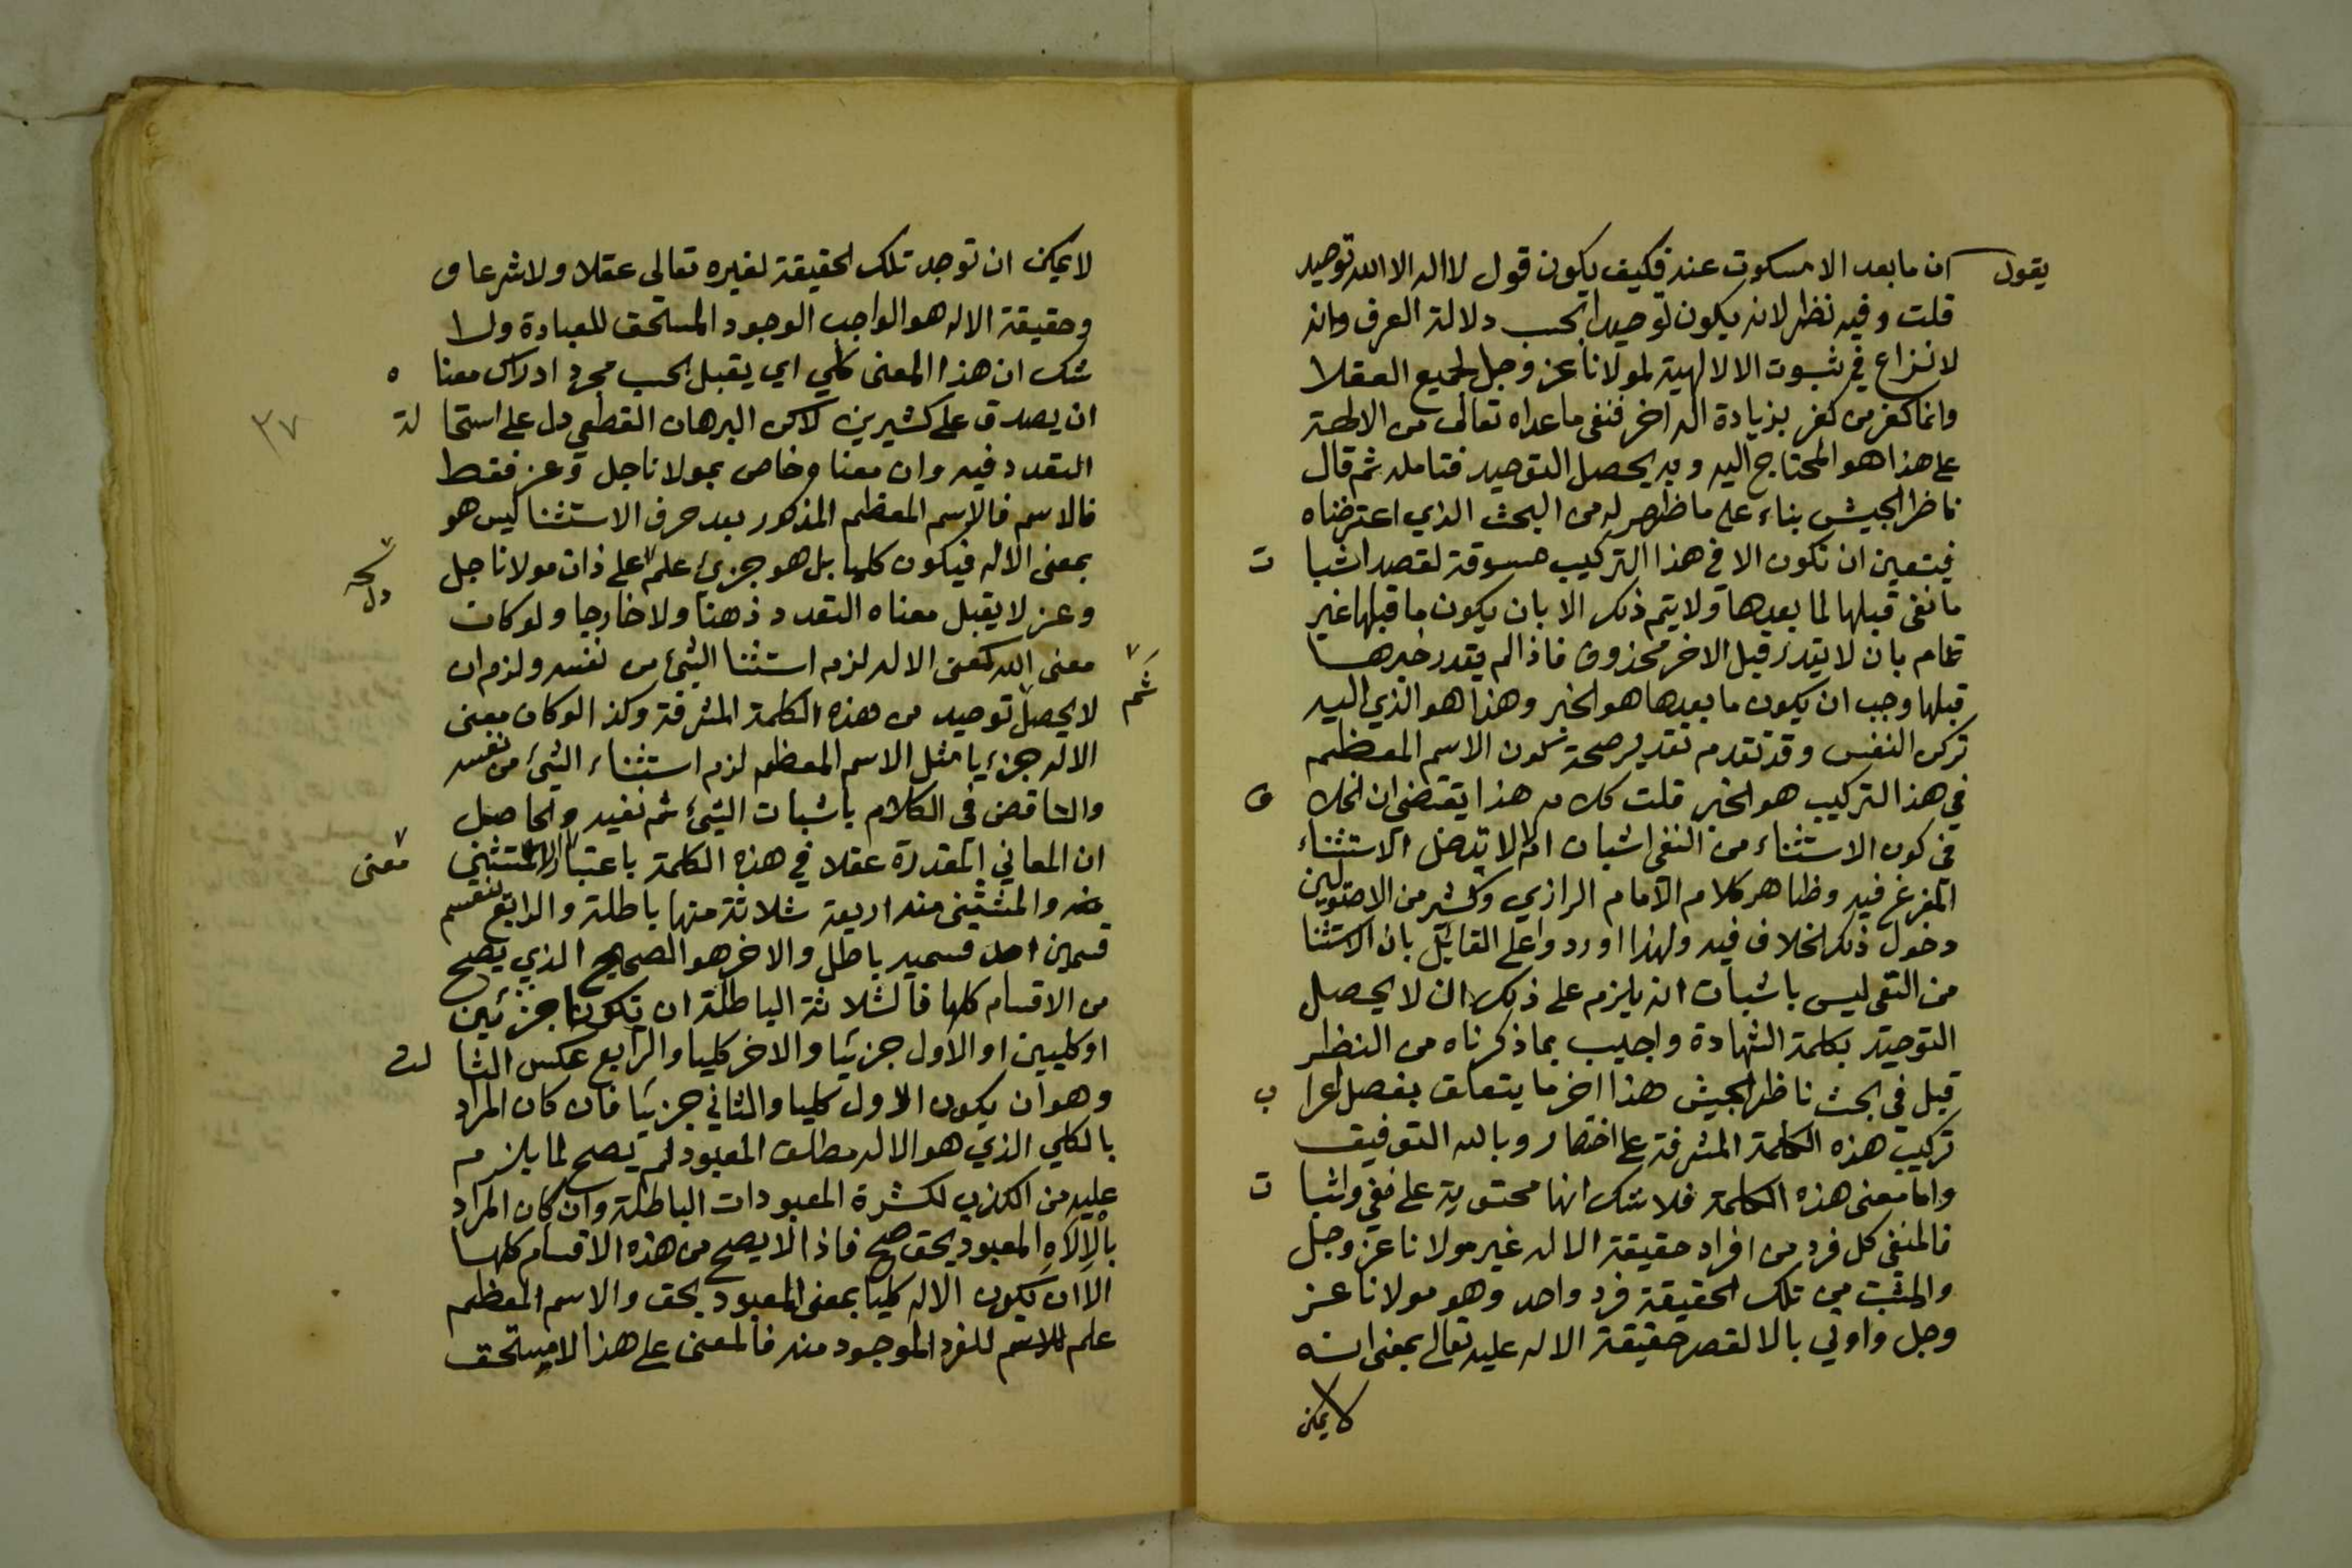 يقول ان ما بعد الا مسكوت عنه فكيف يكون قول لا اله الا الله توحيد
قلت وفيه نظر لانه يكون توحيدا بحسب دلالة العرف وانه
لا نزاع في ثبوت الالالهية لمولانا عز وجل لجميع العقلا
وانما كفر من كفر بزيادة اله اخر فنفى ما عداه تعالى من الالهة
على هذا هو المحتاج اليه وبه يحصل التوحيد فتامله ثم قال
ناظر الجيش بناء على ما ظهر له من البحث الذي اعترضناه
فيتعين ان تكون الا في هذا التركيب مسوقة لقصد اثبات
ما نفى قبلها لما بعدها ولا يتم ذلك الا بان يكون ما قبلها غير
تمام بان لا يقدر قبل الا خبر محذوف فاذا لم يقدر خبرها
قبلها وجب ان يكون ما بعدها هو الخبر وهذا هو الذي اليه
تركن النفس وقد تقدم تقدير صحة كون الاسم المعظم
في هذا التركيب هو الخبر قلت كلامه هذا يقتضي ان الخلاف
في كون الاستثناء من النفي اثبات ام لا يدخل الاستثناء
المفرغ فيه وظاهر كلام الامام الرازي وكثير من الاصوليين
دخول ذلك الخلاف فيه ولهذا اوردوا على القائل بان الاستثنا
من النفي ليس باثبات انه يلزم على ذلك ان لا يحصل
التوحيد بكلمة الشهادة واجيب بما ذكرناه من النظر
قبل في بحث ناظر الجيش هذا اخر ما يتعلق بفصل اعراب
تركيب هذه الكلمة المشرفة على اختصار وبالله التوفيق
واما معنى هذه الكلمة فلا شك انها محتوية على نفي واثبات
فالمنفى كل فرد من افراد حقيقة الاله غير مولانا عز وجل
والمثبت من تلك الحقيقة فرد واحد وهو مولانا عز
وجل واوتي بالا لقصر حقيقة الاله عليه تعالى بمعنى انه
لا يمكن
لا يمكن ان توجد تلك الحقيقة لغيره تعالى عقلا ولا شرعا و
وحقيقة الاله هو الواجب الوجود المستحق للعبادة ولا
شك ان هذا المعنى كلي اي يقبل بحسب مجرد ادراك معناه
ان يصدق على كثيرين لاكن البرهان القطعي دل على استحالة
٣٧
التعدد فيه وان معناه خاص بمولانا جل وعز فقط
فالاسم فالاسم المعظم المذكور بعد حرف الاستثنا ليس هو
بمعنى الاله فيكون كليا بل هو جزئي علم على ذات مولانا جل
وعز لا يقبل معناه التعدد ذهنا ولا خارجا ولو كان
معنى الله كمعنى الاله لزم استثنا الشئ من نفسه ولزم ان
ثم
لا يحصل توحيد من هذه الكلمة المشرفة وكذا لو كان معنى
الاله جزئيا مثل الاسم المعظم لزم استثناء الشئ من نفسه
والتناقض في الكلام باثبات الشئ ثم نفيه والحاصل
ان المعاني المقدرة عقلا في هذه الكلمة باعتبار المستثنى
معنى
منه والمستثنى منه اربعة ثلاثة منها باطلة والرابع تنقسم
قسمين احد قسميه باطل والاخر هو الصحيح الذي يصح
من الاقسام كلها فالثلاثة الباطلة ان تكونا جزئيين
او كليين او الاول جزئيا والاخر كليا والرابع عكس الثالث
وهو ان يكون الاول كليا والثاني جزئيا فان كان المراد
بالكلي الذي هو الاله مطلق المعبود لم يصح لما يلزم
عليه من الكذب لكثرة المعبودات الباطلة وان كان المراد
بالالاه المعبود بحق صح فاذا لا يصح من هذه الاقسام كلها
الا ان يكون الاله كليا بمعنى المعبود بحق والاسم المعظم
علم للاسم للفرد الموجود منه فالمعنى على هذا لا مستحق